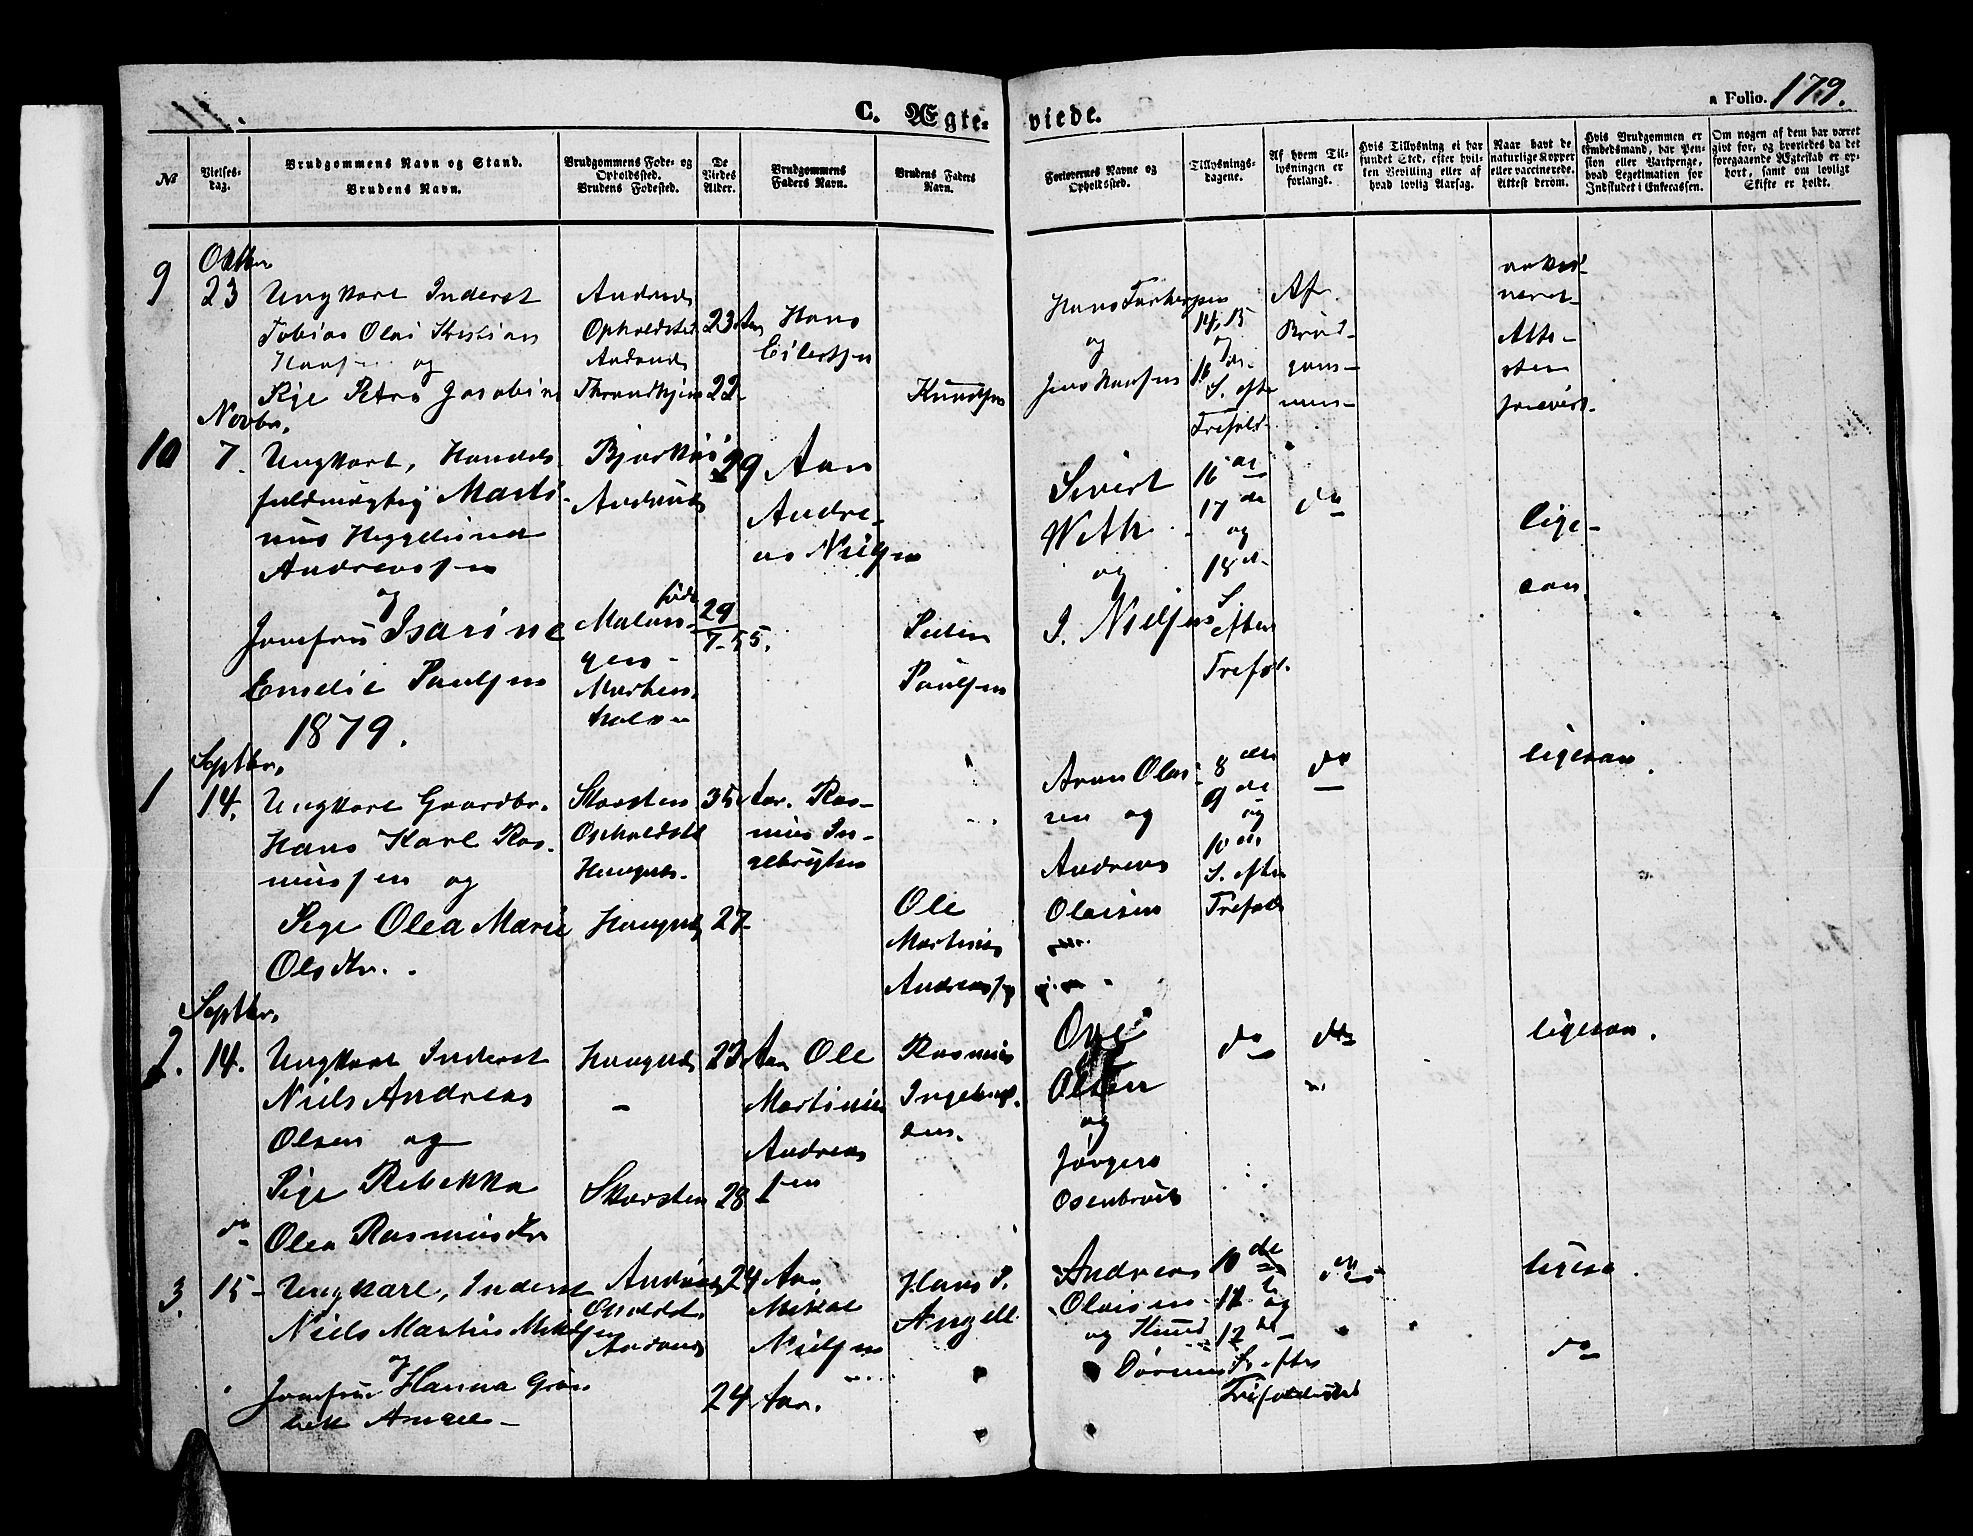 C. Ægte-
viede.
a Folio. 179.
№
Vielses-
dag.
Brudgommens Navn og Stand.
Brudens Navn.
Brudgommens Føde- og
Opholdssted.
Brudens Fødested.
De
Viedes
Alder.
Brudgommens
Faders Navn.
Brudens Faders
Navn.
Forlovernes Navne og
Opholdssted.
Tillysnings-
dagene.
Af hvem Til-
lysningen er
forlangt.
Hvis Tillysning ei har
fundet Sted, efter hvil-
ken Bevilling eller af
hvad lovlig Aarsag.
Naar havt de
naturlige Kopper
eller vaccinerede.
Attest derom.
Hvis Brudgommen er
Embedsmand, har Pen-
sion eller Vartpenge,
hvad Legetimation for
Indskudet i Enkecassen.
Om nogen af dem har været
givt før, og hvorledes da det
foregaaende Ægteskab er op-
hørt, samt om lovligt
Skifte er holdt.
9
23
Ungkarl Inderst
Tobias Olai Kristian
Hansen og
Pige Petra Jacobine
Opholdsted
Trondhjem
23 Aar
22
Hans
Eilertsen
Knudsen
og
Jens Hansen
14, 15
og
16 de
S. efter
Trefold.
Af
Brud-
gom-
men
Novbr.
10
7.
Ungkarl, Handels
fuldmægtig Marti-
nus Heggelund
Andreassen
og
Jomfru Isarine
Emelie Paulsen
Bjarkøi
Malan-
gen
29
født
29
7-55.
Aar
Andre-
as Nielsen
Peder
Paulsen
Sivert
Weth
og
J. Nielsen
16 de
17 de
og
18 de
S. efter
Trefol.
do
lige-
saa.
1879.
Septbr.
1
14.
Ungkarl Gaardbr.
Hans Karl Ras-
mussen og
Pige Olea Marie
Olsdtr.
Skarsten
Opholdsted
Haugnes.
Haugnes
35
27
Aar. Ras-
mus In-
gebrigtsen
Ole
Martinus
Andreassen
Aron Olai-
sen og
Andreas
Olaisen
8 de
9 de
og
10 de
S. efter
Trefold
do
ligesaa.
Septbr.
2.
14.
Ungkarl Inderst
Niels Andreas
Olsen og
Pige Rebekka
Olea Rasmusdtr
Haugnes
Skarsten
28
Aar Ole
Martinus
Andreas
sen
Rasmus
Ingebrigt-
sen.
Ole
Olsen
og
Jørgen
Osenbrock
do
do
ligesaa.
do
3.
15
Ungkarl, Inderst
Niels Martin Mikalsen
og
Jomfru Hanna Grøn-
bek Angell
Opholdst.
24 Aar
24 Aar.
Mikal
Nielsen
Hans P.
Angell
Andreas
Olaisen
og Knud
10 de
11 te og
12 te
S. efter
do
ligesaa.
do